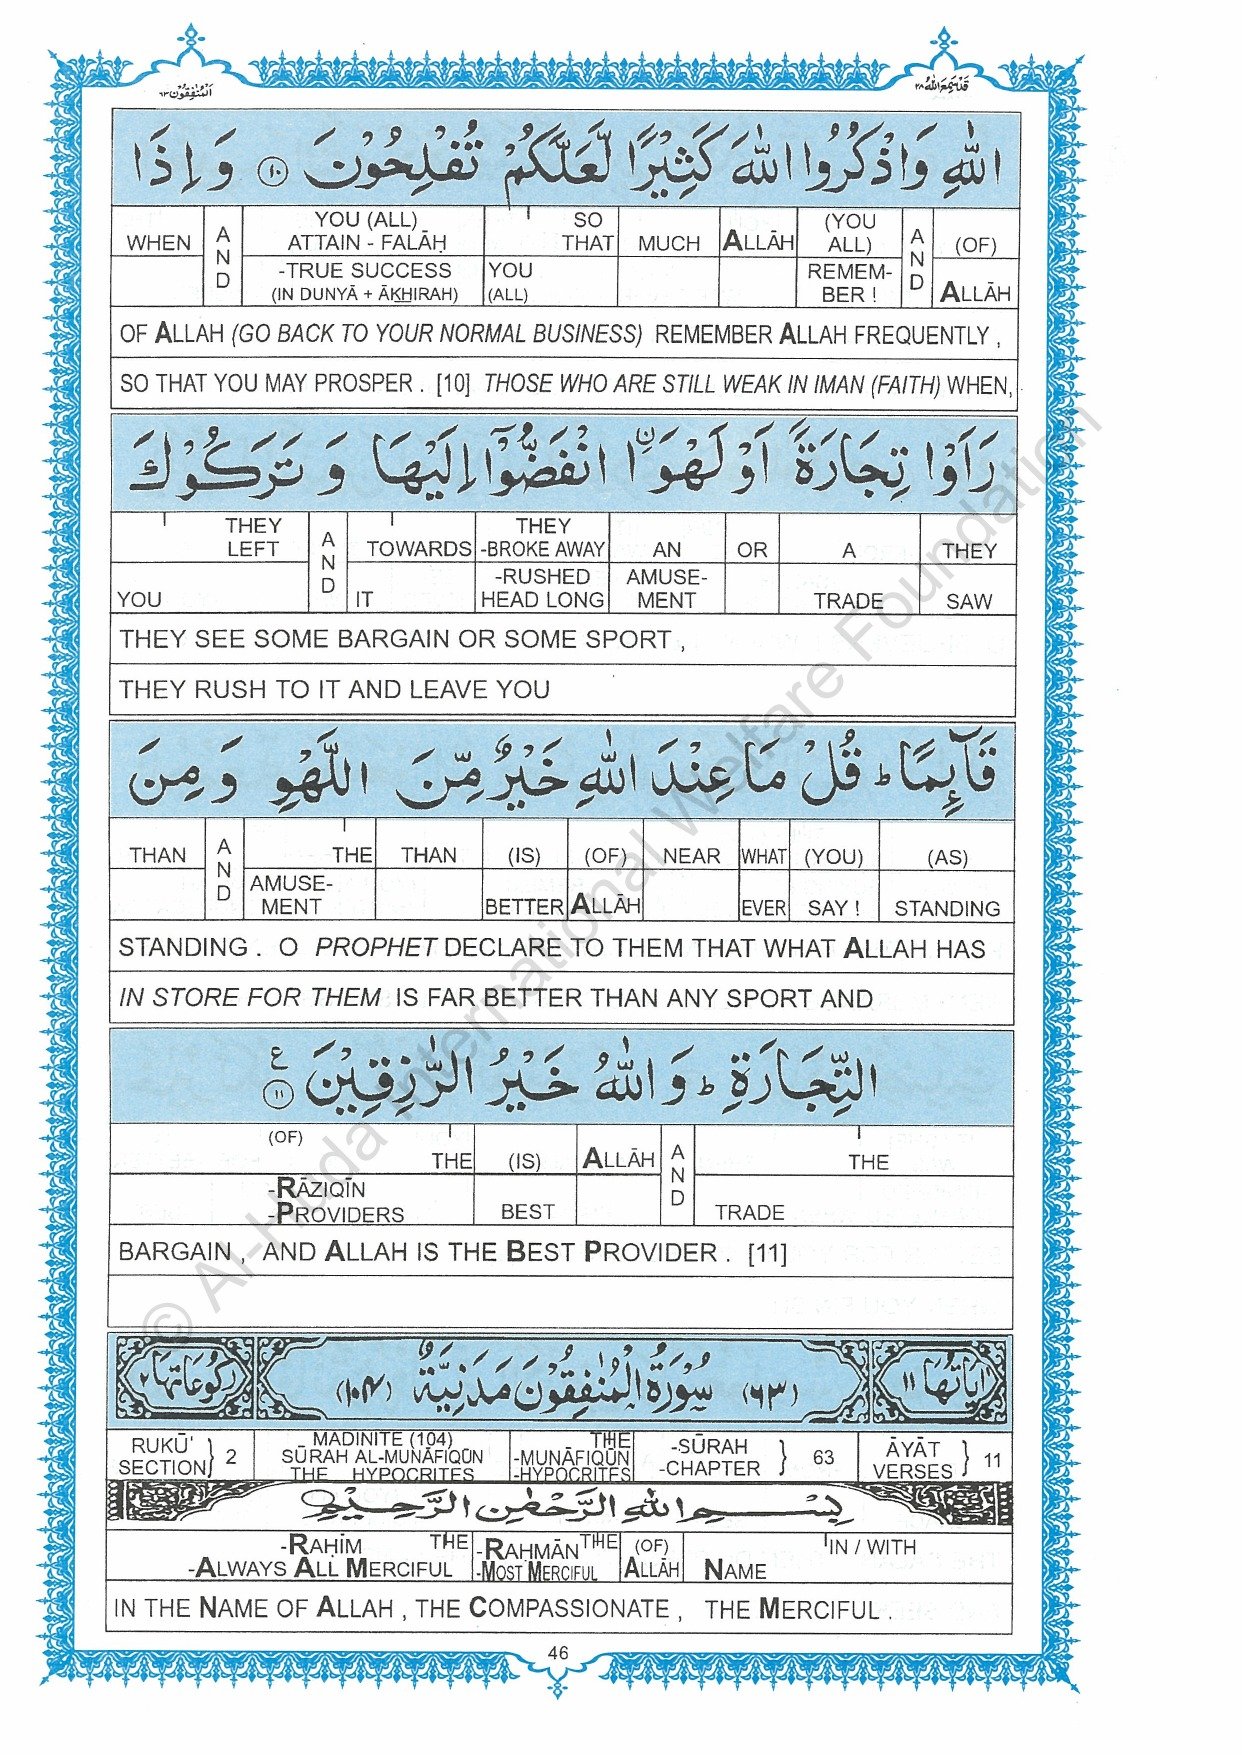 المنٰفقون ٦٣
قد سمع اللّٰه ٢٨
اللّٰهِ وَاذْكُرُوا اللّٰهَ كَثِيْرًا لَّعَلَّكُمْ تُفْلِحُوْنَ ١٠ وَاِذَا
WHEN AND YOU (ALL) ATTAIN - FALĀḤ SO THAT MUCH ALLĀH (YOU ALL) AND (OF)
-TRUE SUCCESS (IN DUNYĀ + ĀKHIRAH) YOU (ALL) REMEM-BER ! ALLĀH
OF ALLAH (GO BACK TO YOUR NORMAL BUSINESS) REMEMBER ALLAH FREQUENTLY ,
SO THAT YOU MAY PROSPER . [10] THOSE WHO ARE STILL WEAK IN IMAN (FAITH) WHEN,
رَاَوْا تِجَارَةً اَوْ لَهْوَاۨ انْفَضُّوْٓا اِلَيْهَا وَ تَرَكُوْكَ
THEY LEFT AND TOWARDS THEY -BROKE AWAY AN OR A THEY
YOU IT -RUSHED HEAD LONG AMUSE-MENT TRADE SAW
THEY SEE SOME BARGAIN OR SOME SPORT ,
THEY RUSH TO IT AND LEAVE YOU
قَآىِٕمًا ؕ قُلْ مَا عِنْدَ اللّٰهِ خَيْرٌ مِّنَ اللَّهْوِ وَ مِنَ
THAN AND THE THAN (IS) (OF) NEAR WHAT (YOU) (AS)
AMUSE-MENT BETTER ALLĀH EVER SAY ! STANDING
STANDING . O PROPHET DECLARE TO THEM THAT WHAT ALLAH HAS
IN STORE FOR THEM IS FAR BETTER THAN ANY SPORT AND
التِّجَارَةِ ؕ وَاللّٰهُ خَيْرُ الرّٰزِقِيْنَ ١١ ع
(OF) THE (IS) ALLĀH AND THE
-RĀZIQĪN -PROVIDERS BEST TRADE
BARGAIN , AND ALLAH IS THE BEST PROVIDER . [11]
اٰيَاتُهَا ١١ (٦٣) سُوْرَةُ الْمُنٰفِقُوْنَ مَدَنِيَّةٌ (١٠٤) رُكُوْعَاتُهَا ٢
RUKŪ' SECTION } 2 MADINITE (104) SŪRAH AL-MUNĀFIQŪN THE HYPOCRITES THE -MUNĀFIQŪN -HYPOCRITES -SŪRAH -CHAPTER } 63 ĀYĀT VERSES } 11
بِسْمِ اللّٰهِ الرَّحْمٰنِ الرَّحِيْمِ
-RAḤĪM THE -RAḤMĀN THE (OF) IN / WITH
-ALWAYS ALL MERCIFUL -MOST MERCIFUL ALLĀH NAME
IN THE NAME OF ALLAH , THE COMPASSIONATE , THE MERCIFUL .
46
© Al-Huda International Welfare Foundation